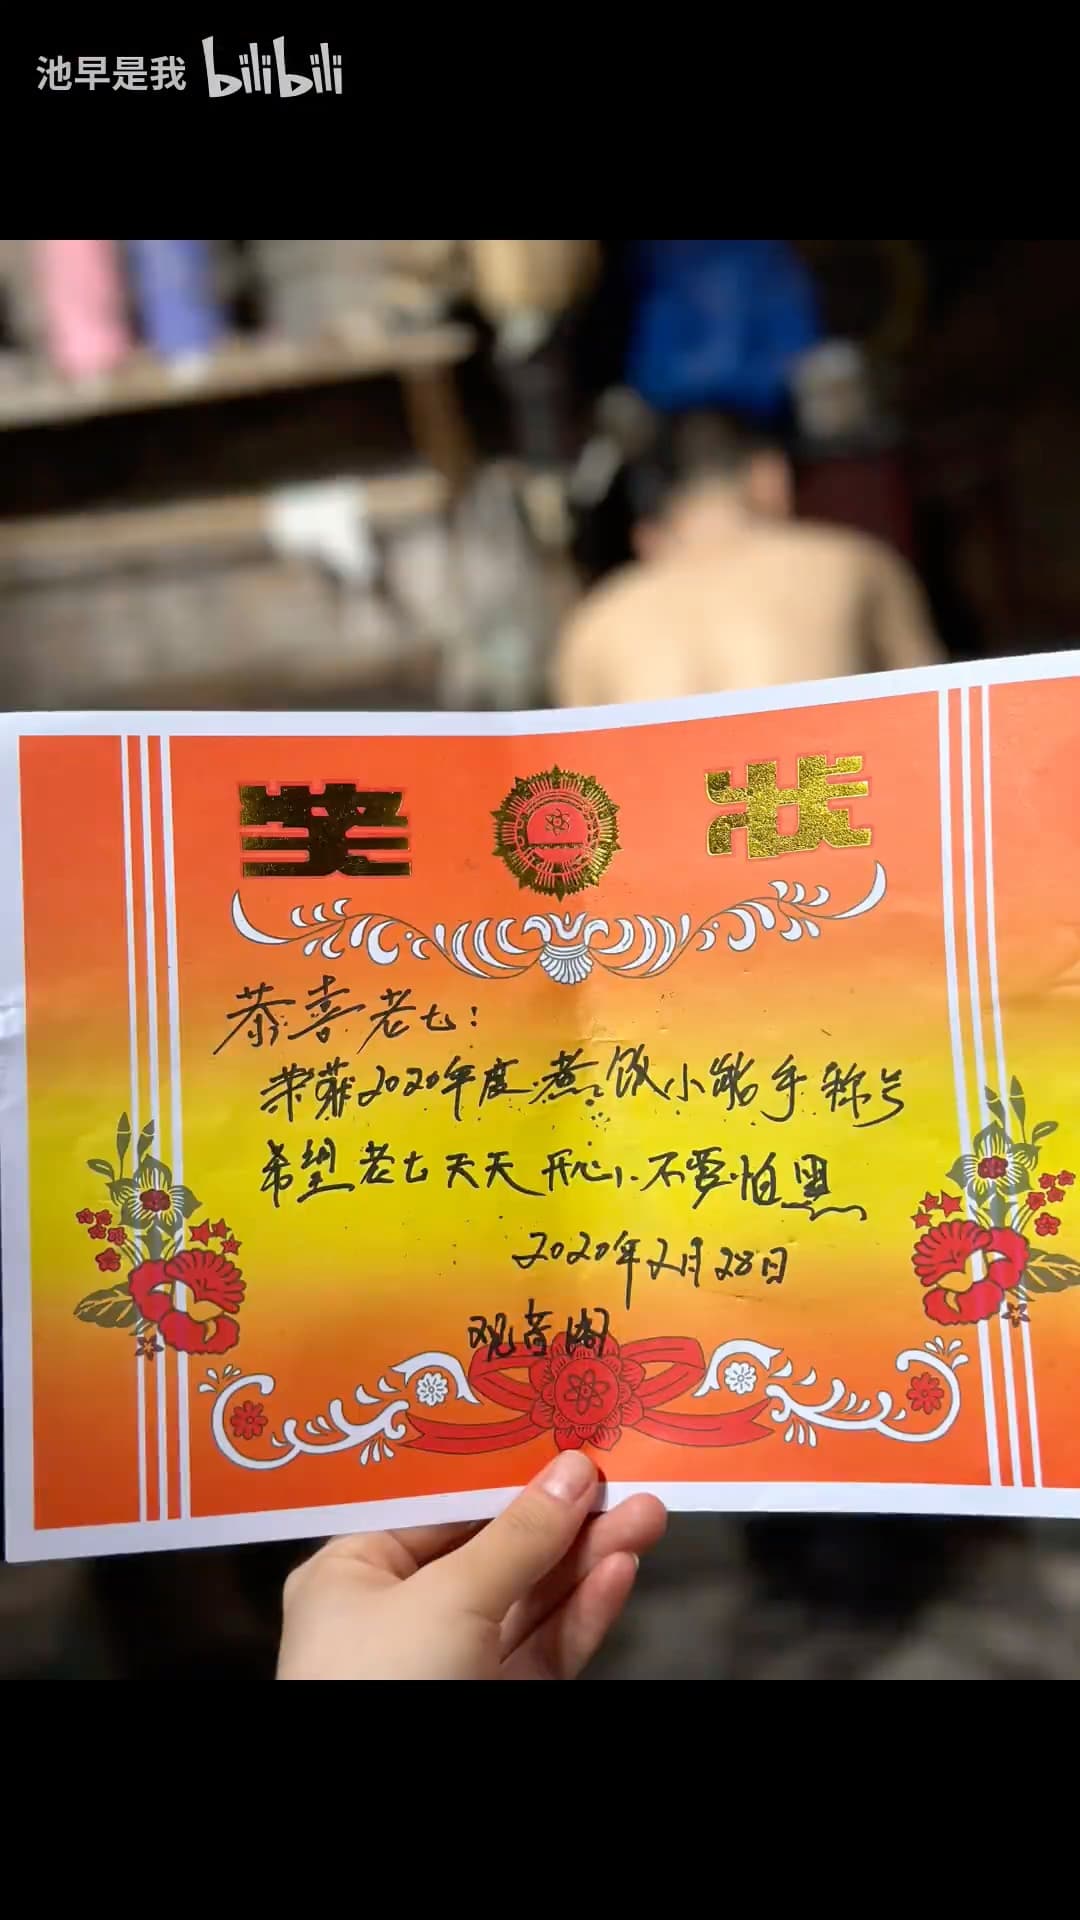 池早是我 bilibili
奖状
恭喜老七:
荣获2020年度煮饭小能手称号
希望老七天天开心、不要怕黑
2020年2月28日
观音阁